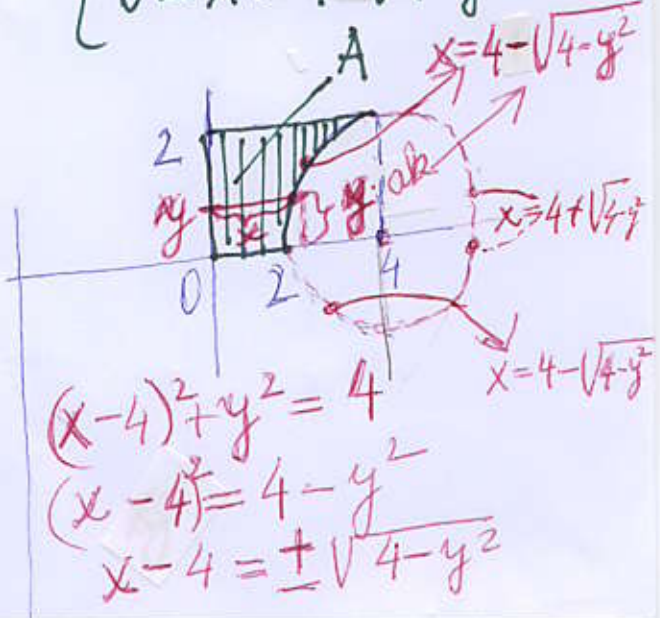 A
x=4-√4-y²
2
y
x
y
ok
x=4+√4-y²
0
2
4
x=4-√4-y²
(x-4)²+y²=4
(x-4)²=4-y²
x-4=±√4-y²